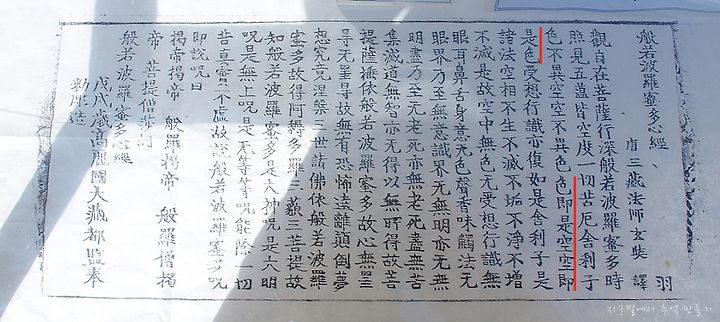 般若波羅蜜多心經 羽
唐三藏法師玄奘 譯
觀自在菩薩行深般若波羅蜜多時
照見五蘊皆空度一切苦厄舍利子
色不異空空不異色色即是空空即
是色受想行識亦復如是舍利子是
諸法空相不生不滅不垢不淨不增
不減是故空中無色无受想行識無
眼耳鼻舌身意无色聲香味觸法无
眼界乃至無意識界無無明亦無无
明盡乃至无老死亦無老死盡無苦
集滅道無智亦无得以無所得故菩
提薩埵依般若波羅蜜多故心無罣
㝵无罣㝵故無有恐怖遠離顛倒夢
想究竟涅槃三世諸佛依般若波羅
蜜多故得阿耨多羅三藐三菩提故
知般若波羅蜜多是大神呪是大明
呪是無上呪是无等等呪能除一切
苦真實不虛故說般若波羅蜜多呪
即說呪曰
揭帝揭帝 般羅揭帝 般羅僧揭
帝 菩提僧莎訶
般若波羅蜜多心經
戊戌歲高麗國大藏都監奉
勅雕造
지구별에서 추억 만들기